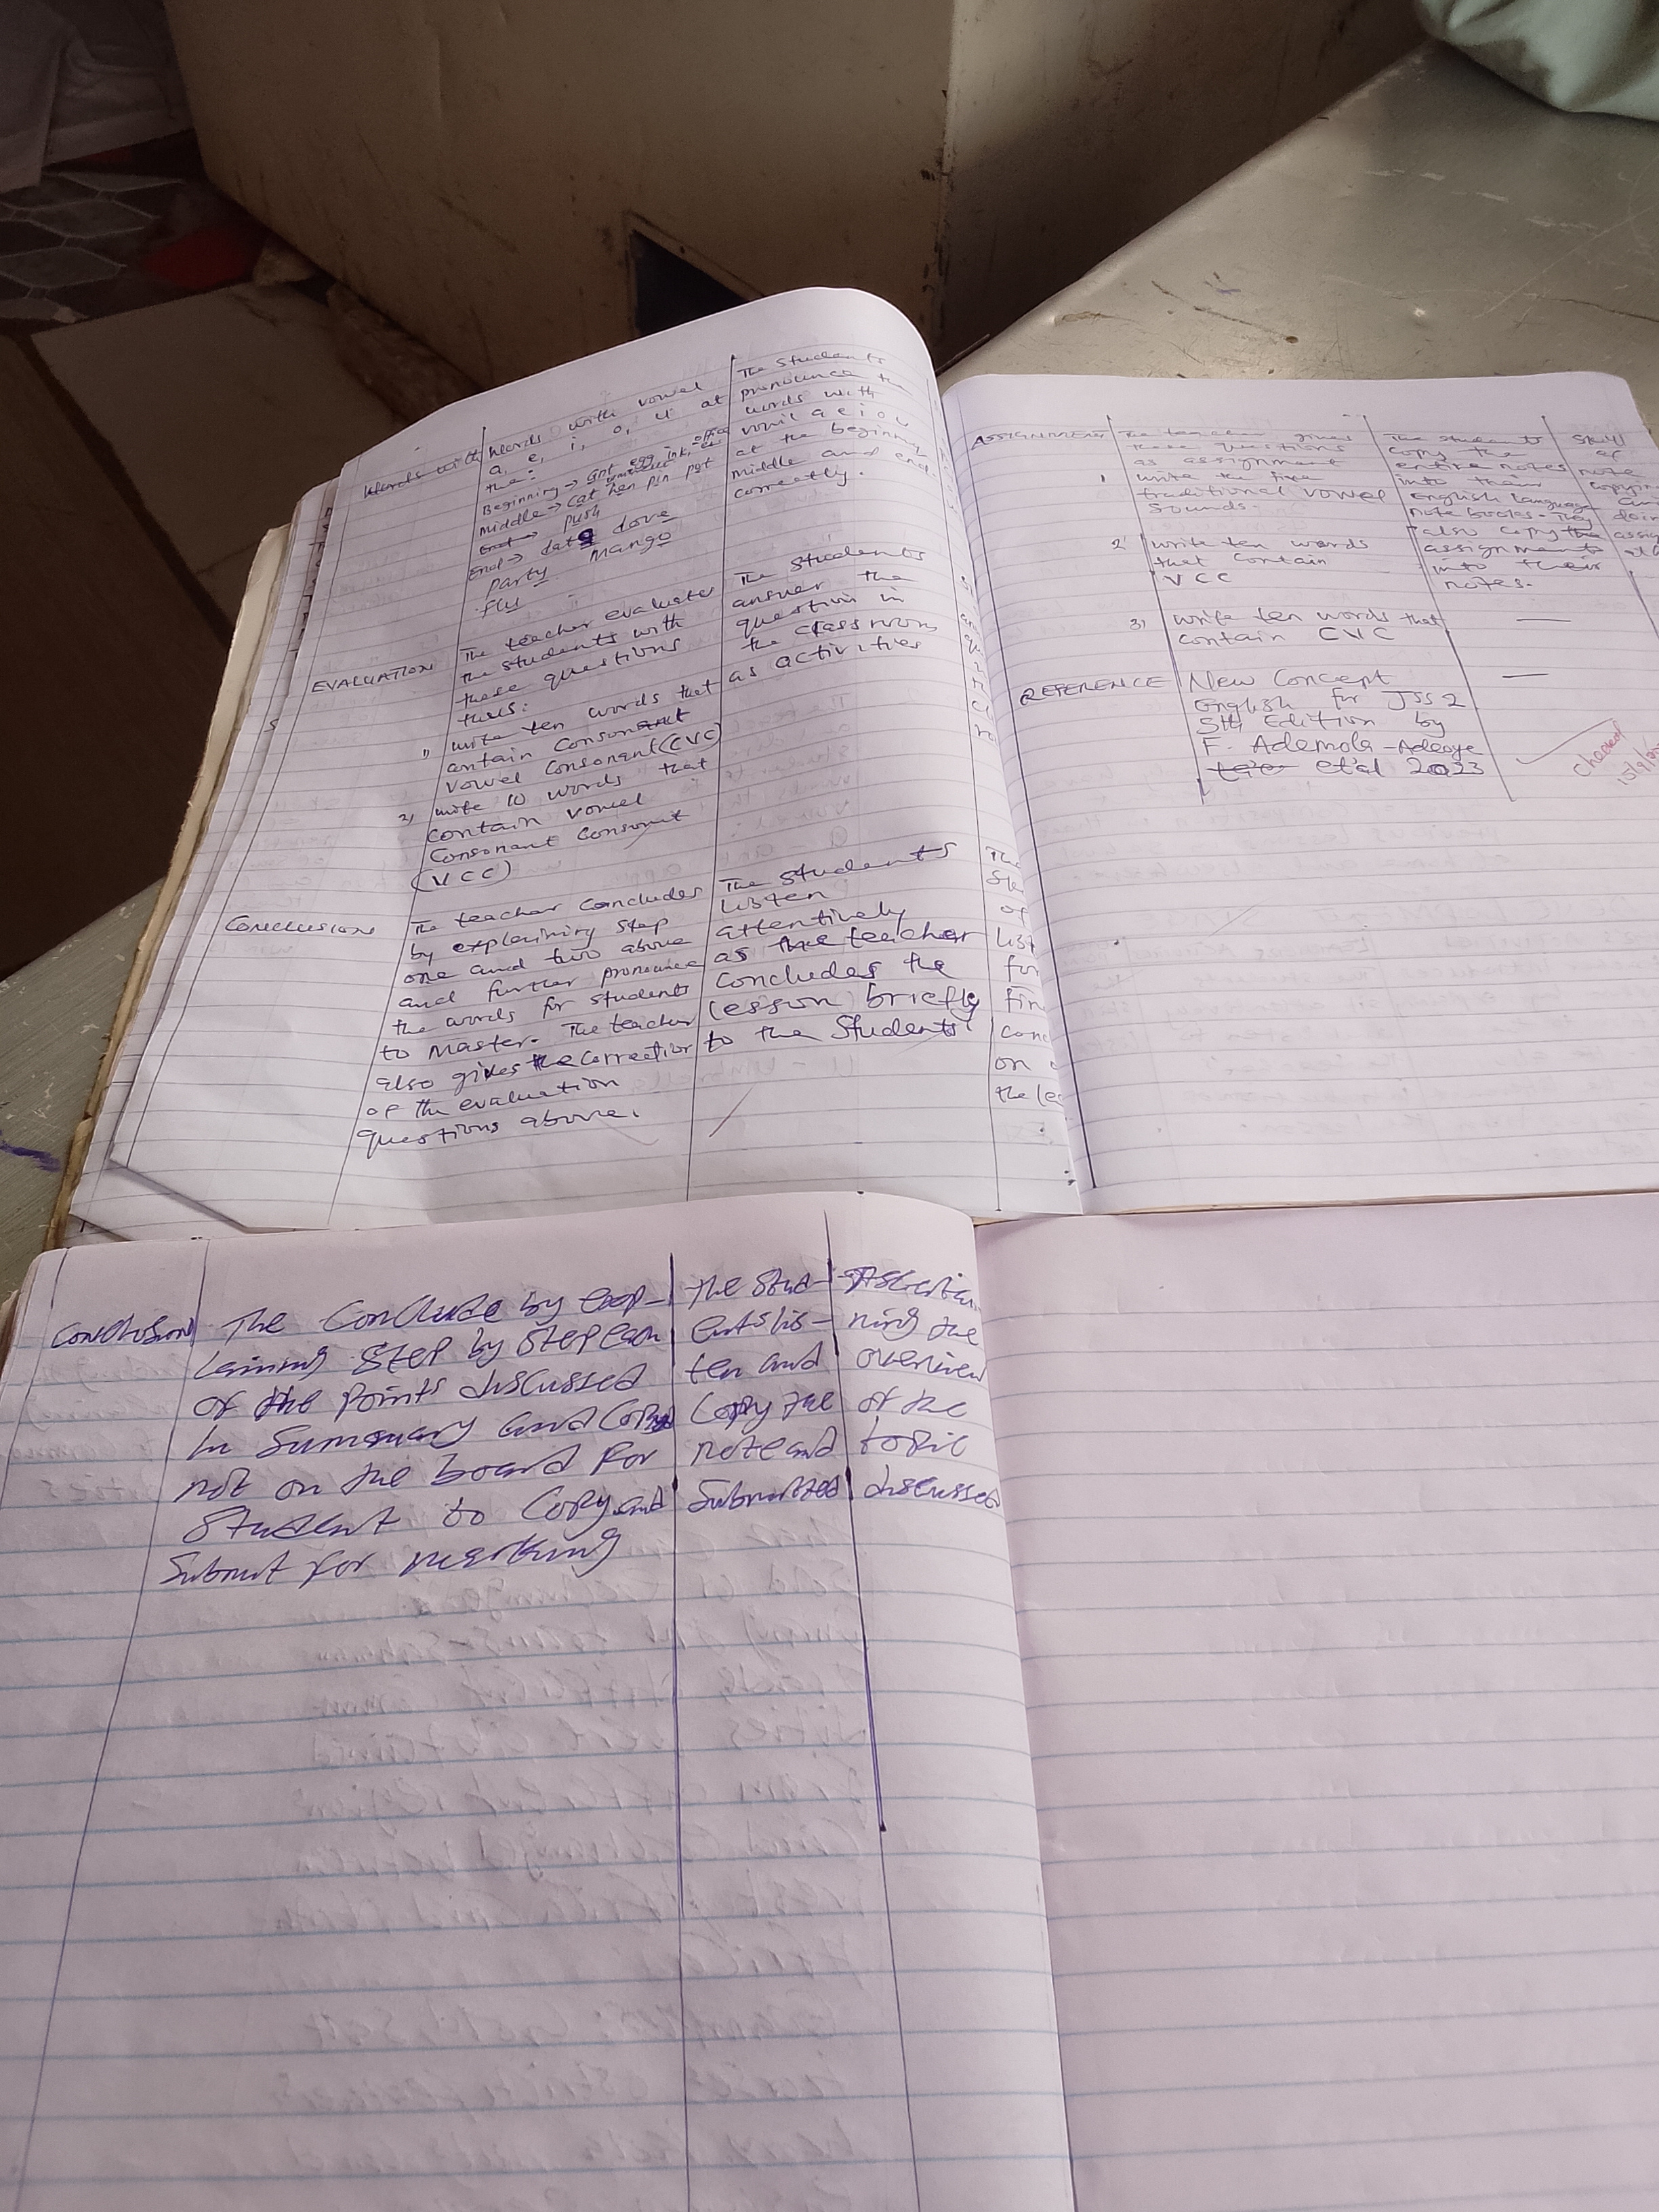 Words with
Words with vowel
a, e, i, o, u at
the:
Beginning → Ant egg ink, office
umbrella
Middle → Cat hen pin pot
push
End →
End → date dove
party Mango
fly
The Students
pronounce the
words with
a e i o u
at the beginning
middle and end
correctly.
EVALUATION
The teacher evaluates
the students with
these questions
thus:
1) write ten words that
contain Consonant
Vowel Consonant (CVC)
2) write 10 words that
contain vowel
Consonant Consonant
(VCC)
The Students
answer the
question in
the classroom
as activities
CONCLUSION
The teacher concludes
by explaining step
one and two above
and further pronounce
the words for students
to Master. The teacher
also gives the correction
of the evaluation
questions above.
The Students
listen
attentively
as the teacher
concludes the
lesson briefly
to the Students
ASSIGNMENT
The teacher gives
these questions
as assignment
1 write the five
traditional vowel
sounds.
2 write ten words
that contain
VCC
3) write ten words that
contain CVC
The Students
copy the
entire notes
into their
English Language
note books. They
also copy the
assignments
into their
notes.
Skill
of
note
REFERENCE
New Concept
English for JSS 2
5th Edition by
F. Ademola-Adeoye
et al 2023
checked
CONCLUSION
The Conclude by exp-
laining Step by Step each
of the Points discussed
In Summary and Copy
not on the board for
Student to Copy and
Submit for marking
The Stud-
ents lis-
ten and
Copy the
note and
Submitted
Ascertai
ning the
overview
of the
topic
discussed